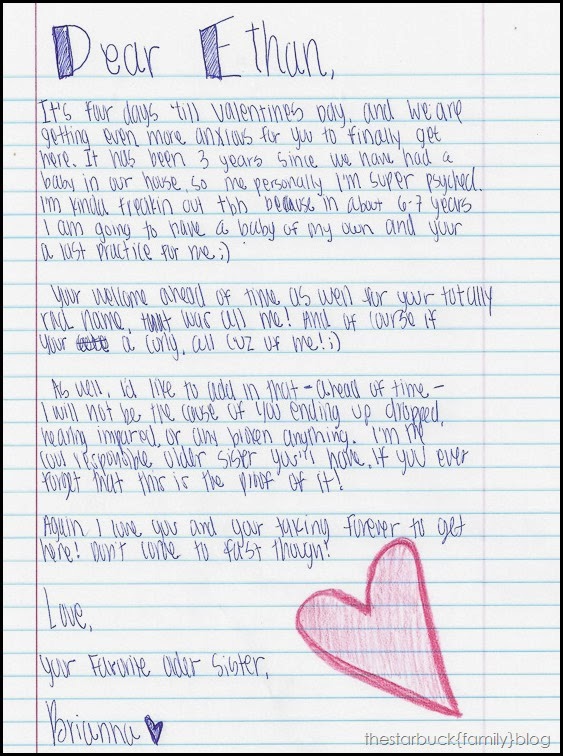 Dear Ethan,
It's four days 'till valentines Day, and we are
getting even more anxious for you to finally get
here. It has been 3 years since we have had a
baby in our house, so me personally I'm super psyched.
I'm kinda freakin out tbh because in about 6-7 years
I am going to have a baby of my own and your
a last practice for me ;)
Your wellcome ahead of time as well for your totally
rad name, that was all me! And of course if
your a curly, all cuz of me! ;)
As well, I'd like to add in that - ahead of time -
I will not be the cause of you ending up dropped,
hearing impared, or any broken anything. I'm the
cool responsible older sister you'll have. If you ever
forget that this is the proof of it!
Again I love you and your taking forever to get
here! Don't come to fast though!
Love,
your Favorite older sister,
Brianna
thestarbuck{family}blog